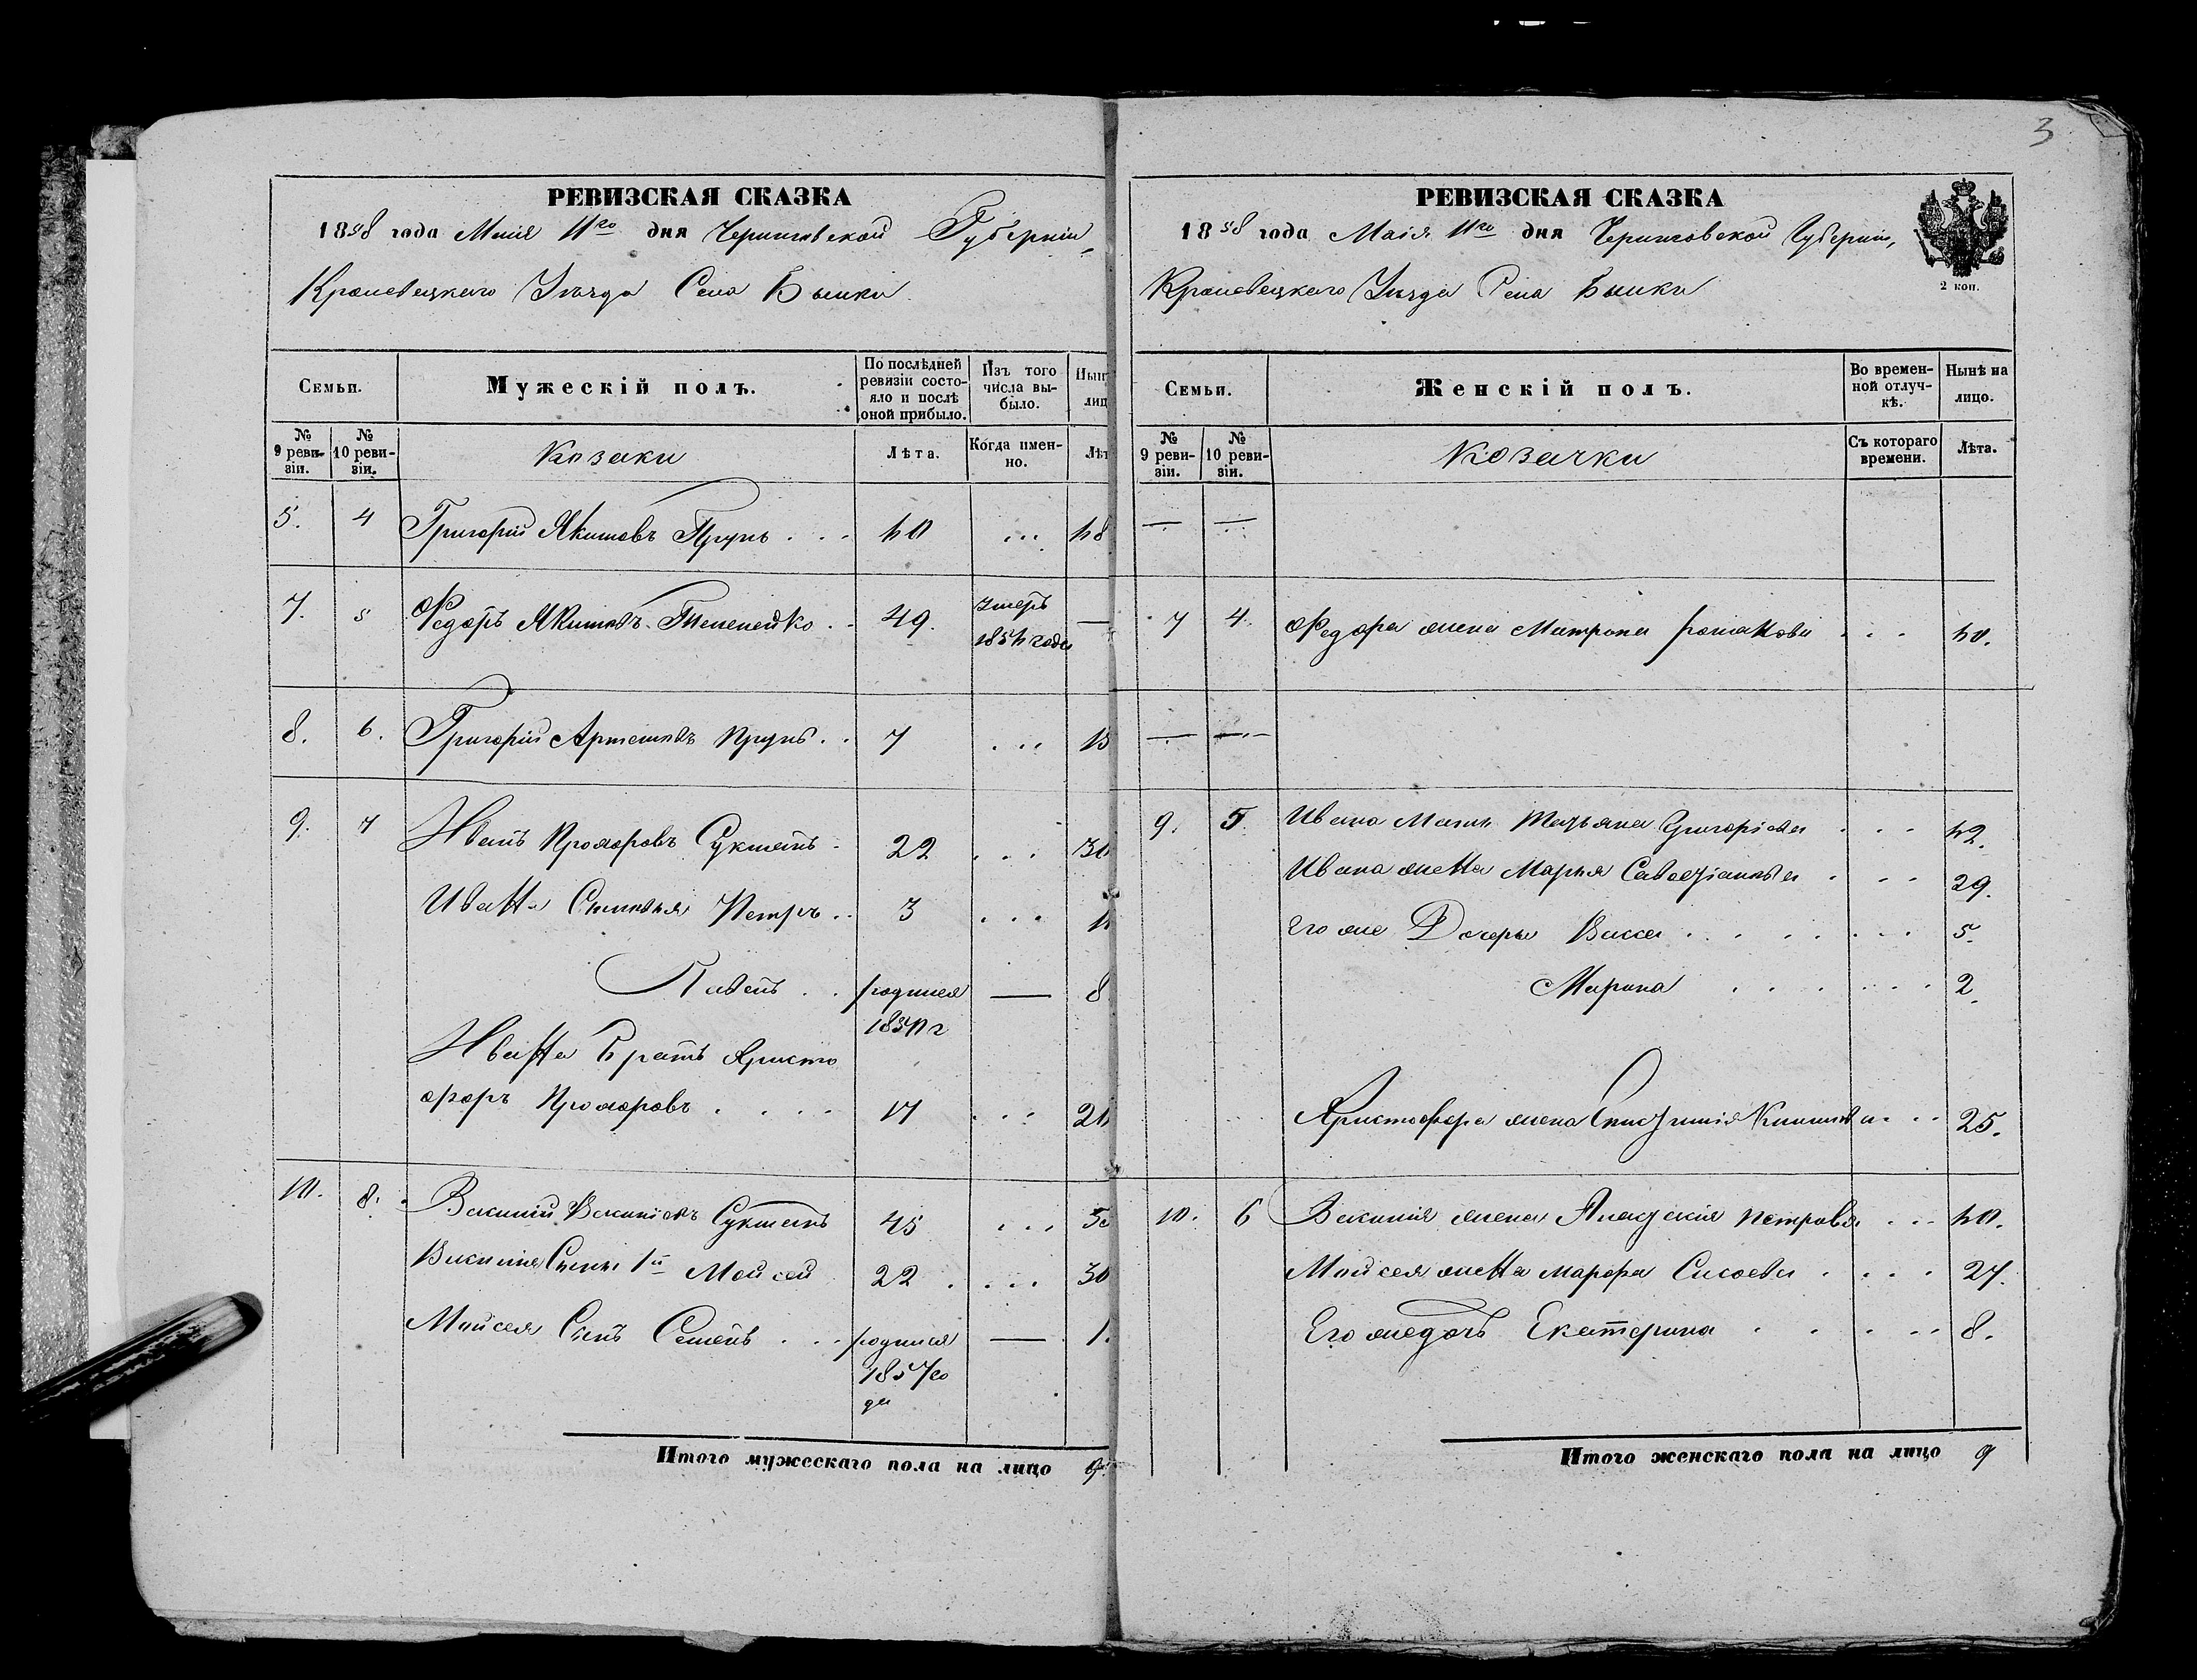 3
РЕВИЗСКАЯ СКАЗКА
1858 года Маія 11го дня Черниговской Губерніи,
Кролевецкаго Уѣзда Села Быики
Семьи.
Мужескій полъ.
По послѣдней ревизіи состояло и послѣ оной прибыло.
Изъ того числа выбыло.
Нын
лиц
№ 9 ревизіи.
№ 10 ревизіи.
Козаки
Лѣта.
Когда именно.
Лѣт
5. 4 Григорій Якимовъ Прунъ . . . 40 ... 48
7. 5 Федоръ Якимовъ . . 49. умеръ 1854 года —
8. 6. Григорій Артемовъ Прунъ . . 7 ... 15
9. 7 Иванъ Прохоровъ Сукманъ . 22 ... 30
Ивана Сыновья Петръ . . 3 ... 11
Павелъ . . родился 1850 г — 8
Ивана Братъ Христо
форъ Прохоровъ . . . . 17 ...
10. 8. Василій Васильевъ Сукманъ 45 ... 5
Василія Сынъ 1й Мойсей 22 . ... 30
Мойсея Сынъ Семенъ . . . родился 1857 го
да — 1.
Итого мужескаго пола на лицо 9.
РЕВИЗСКАЯ СКАЗКА
1858 года Маія 11го дня Черниговской Губерніи,
Кролевецкаго Уѣзда Села Быики
2 коп.
Семьи.
Женскій полъ.
Во временной отлучкѣ.
Нынѣ на лицо.
№ 9 ревизіи.
№ 10 ревизіи.
Козачки
Съ котораго времени.
Лѣта.
— —
7 4. Федора жена Матрона Романова . . . 40.
— —
9. 5. Ивана Мать Татьяна Григорьева . . . 42.
Ивана жена Марья . . . 29.
Его же Дочери Васса . . . . . . . . 5.
Марина . . . . . . . 2.
Христофора жена . . 25.
10. 6 Василія жена Петрова . . . 40.
Мойсея жена Марфа Сисоева . . . . 27.
Его же дочь Екатерина . . . . . 8.
Итого женскаго пола на лицо 9